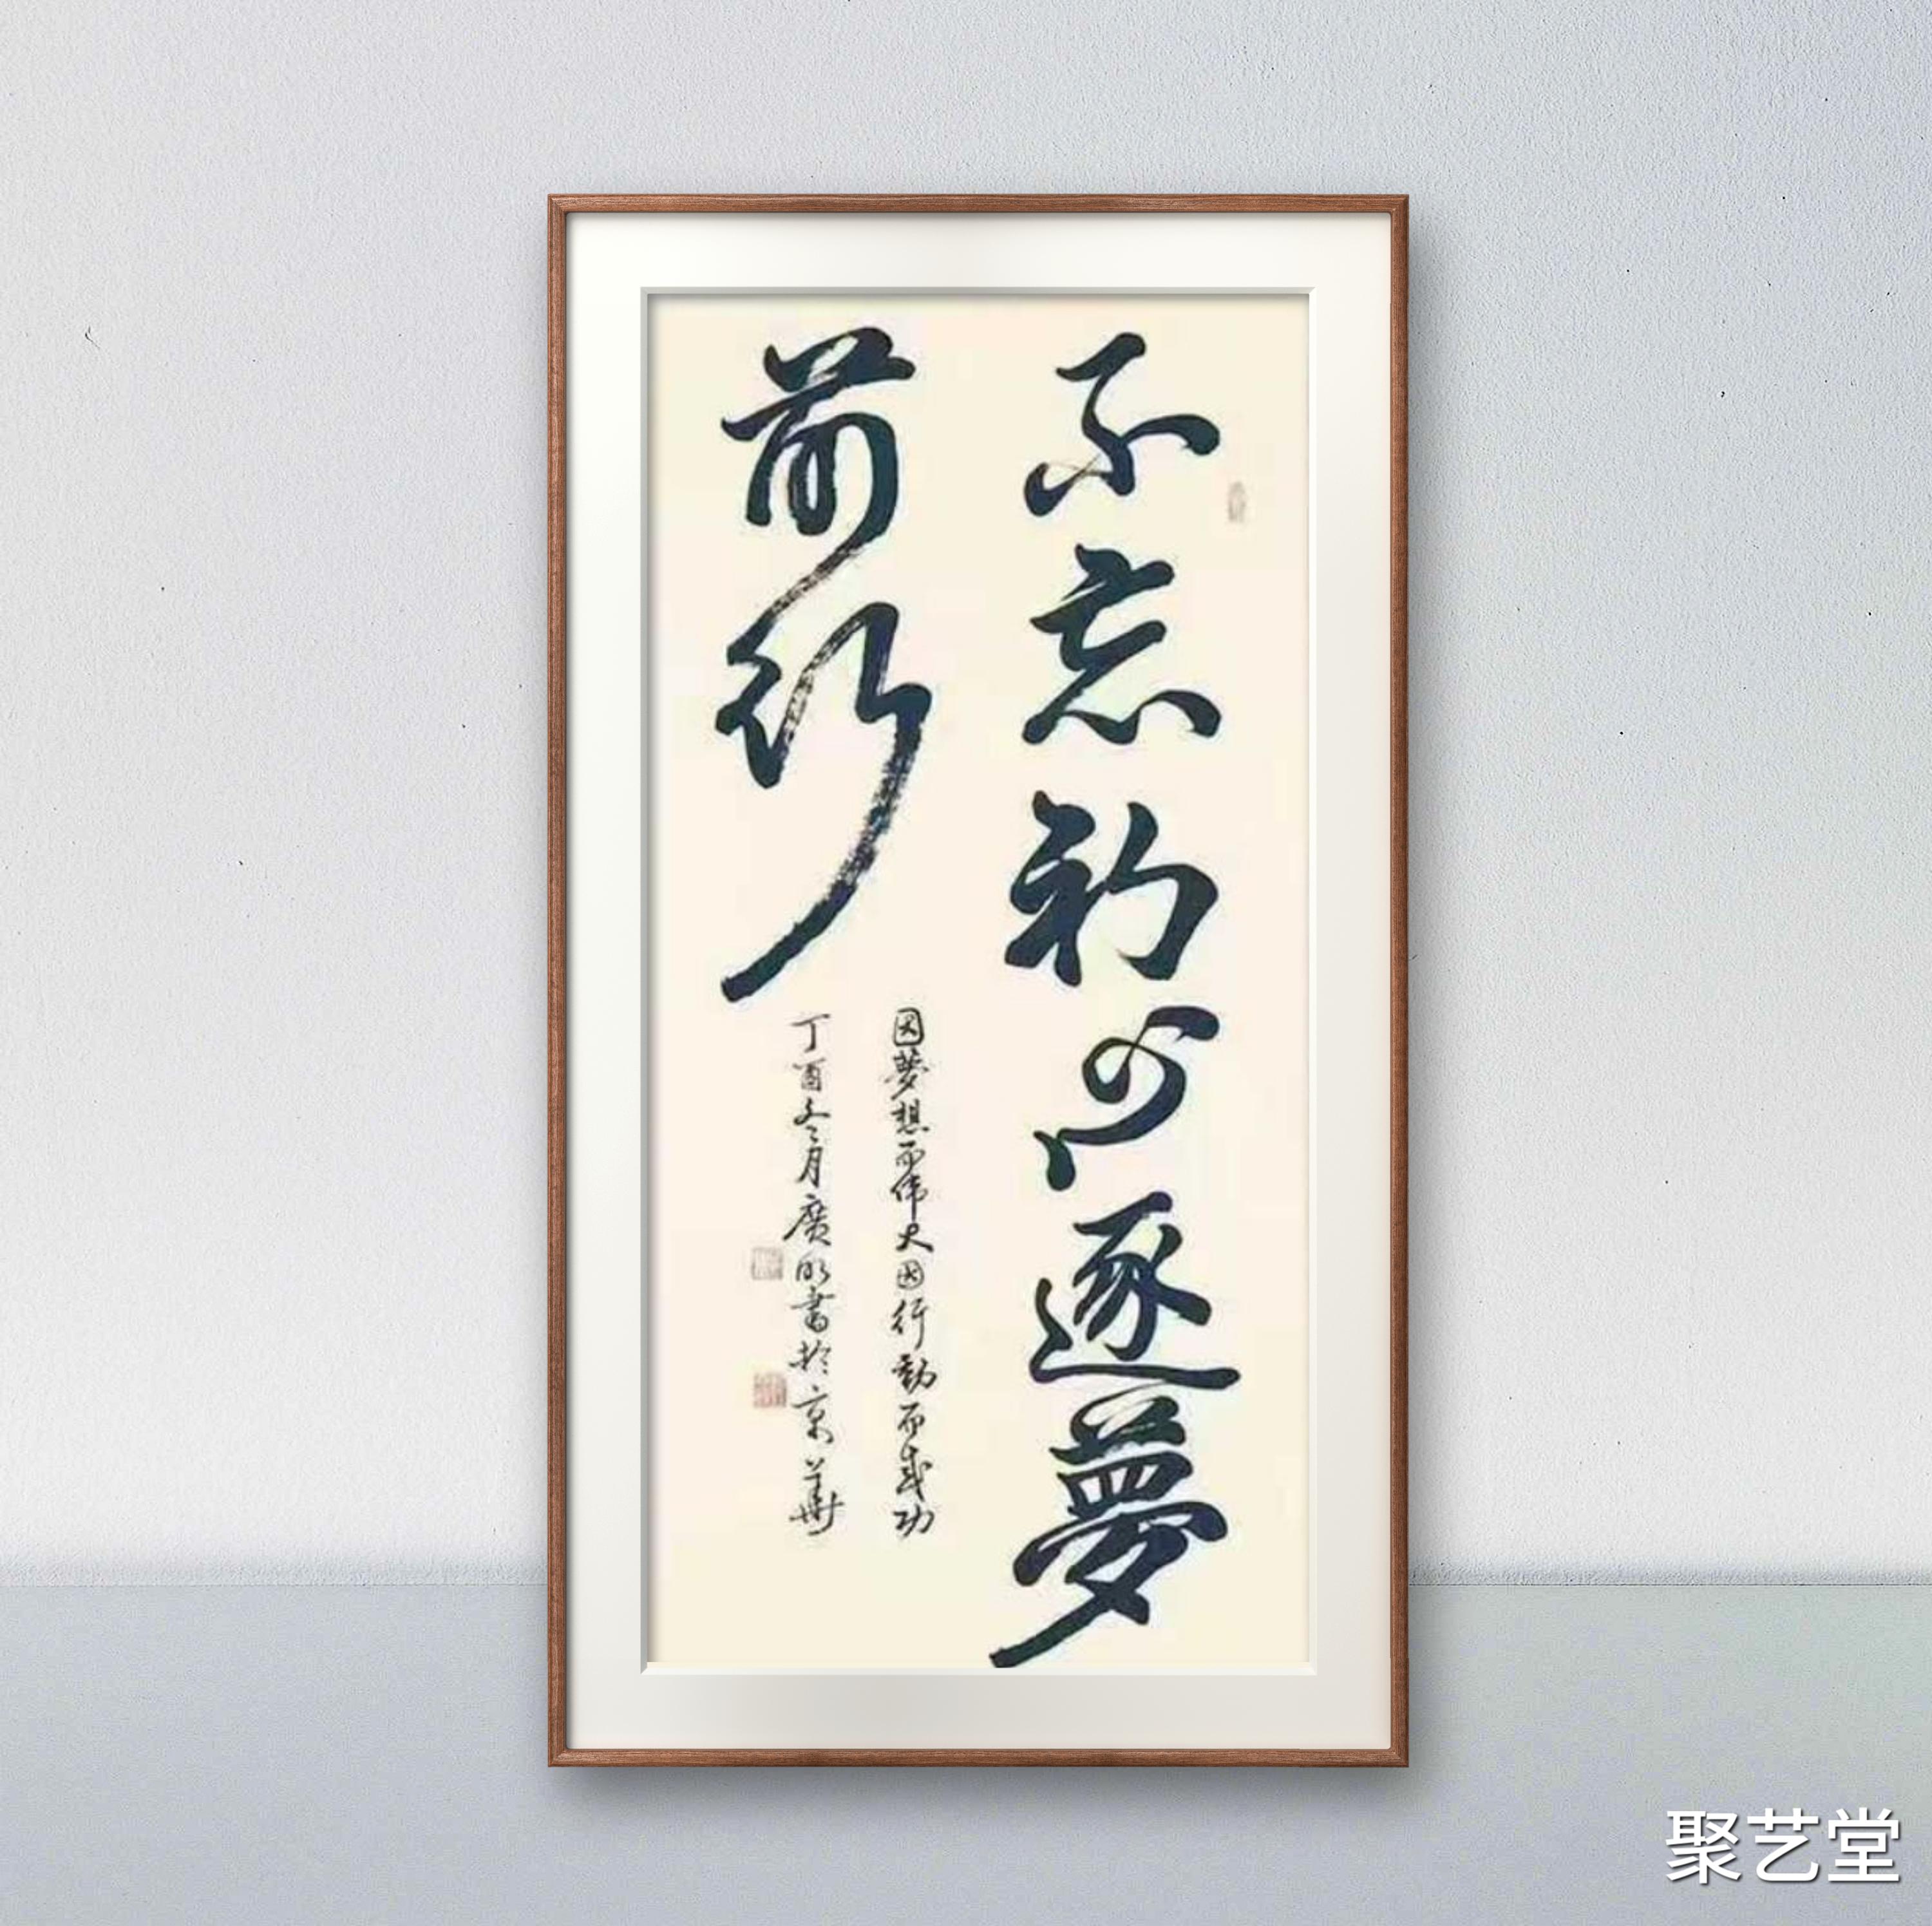 不忘初心逐夢
前行
因夢想而伟大因行動而成功
丁酉冬月廣明書於京華
聚艺堂